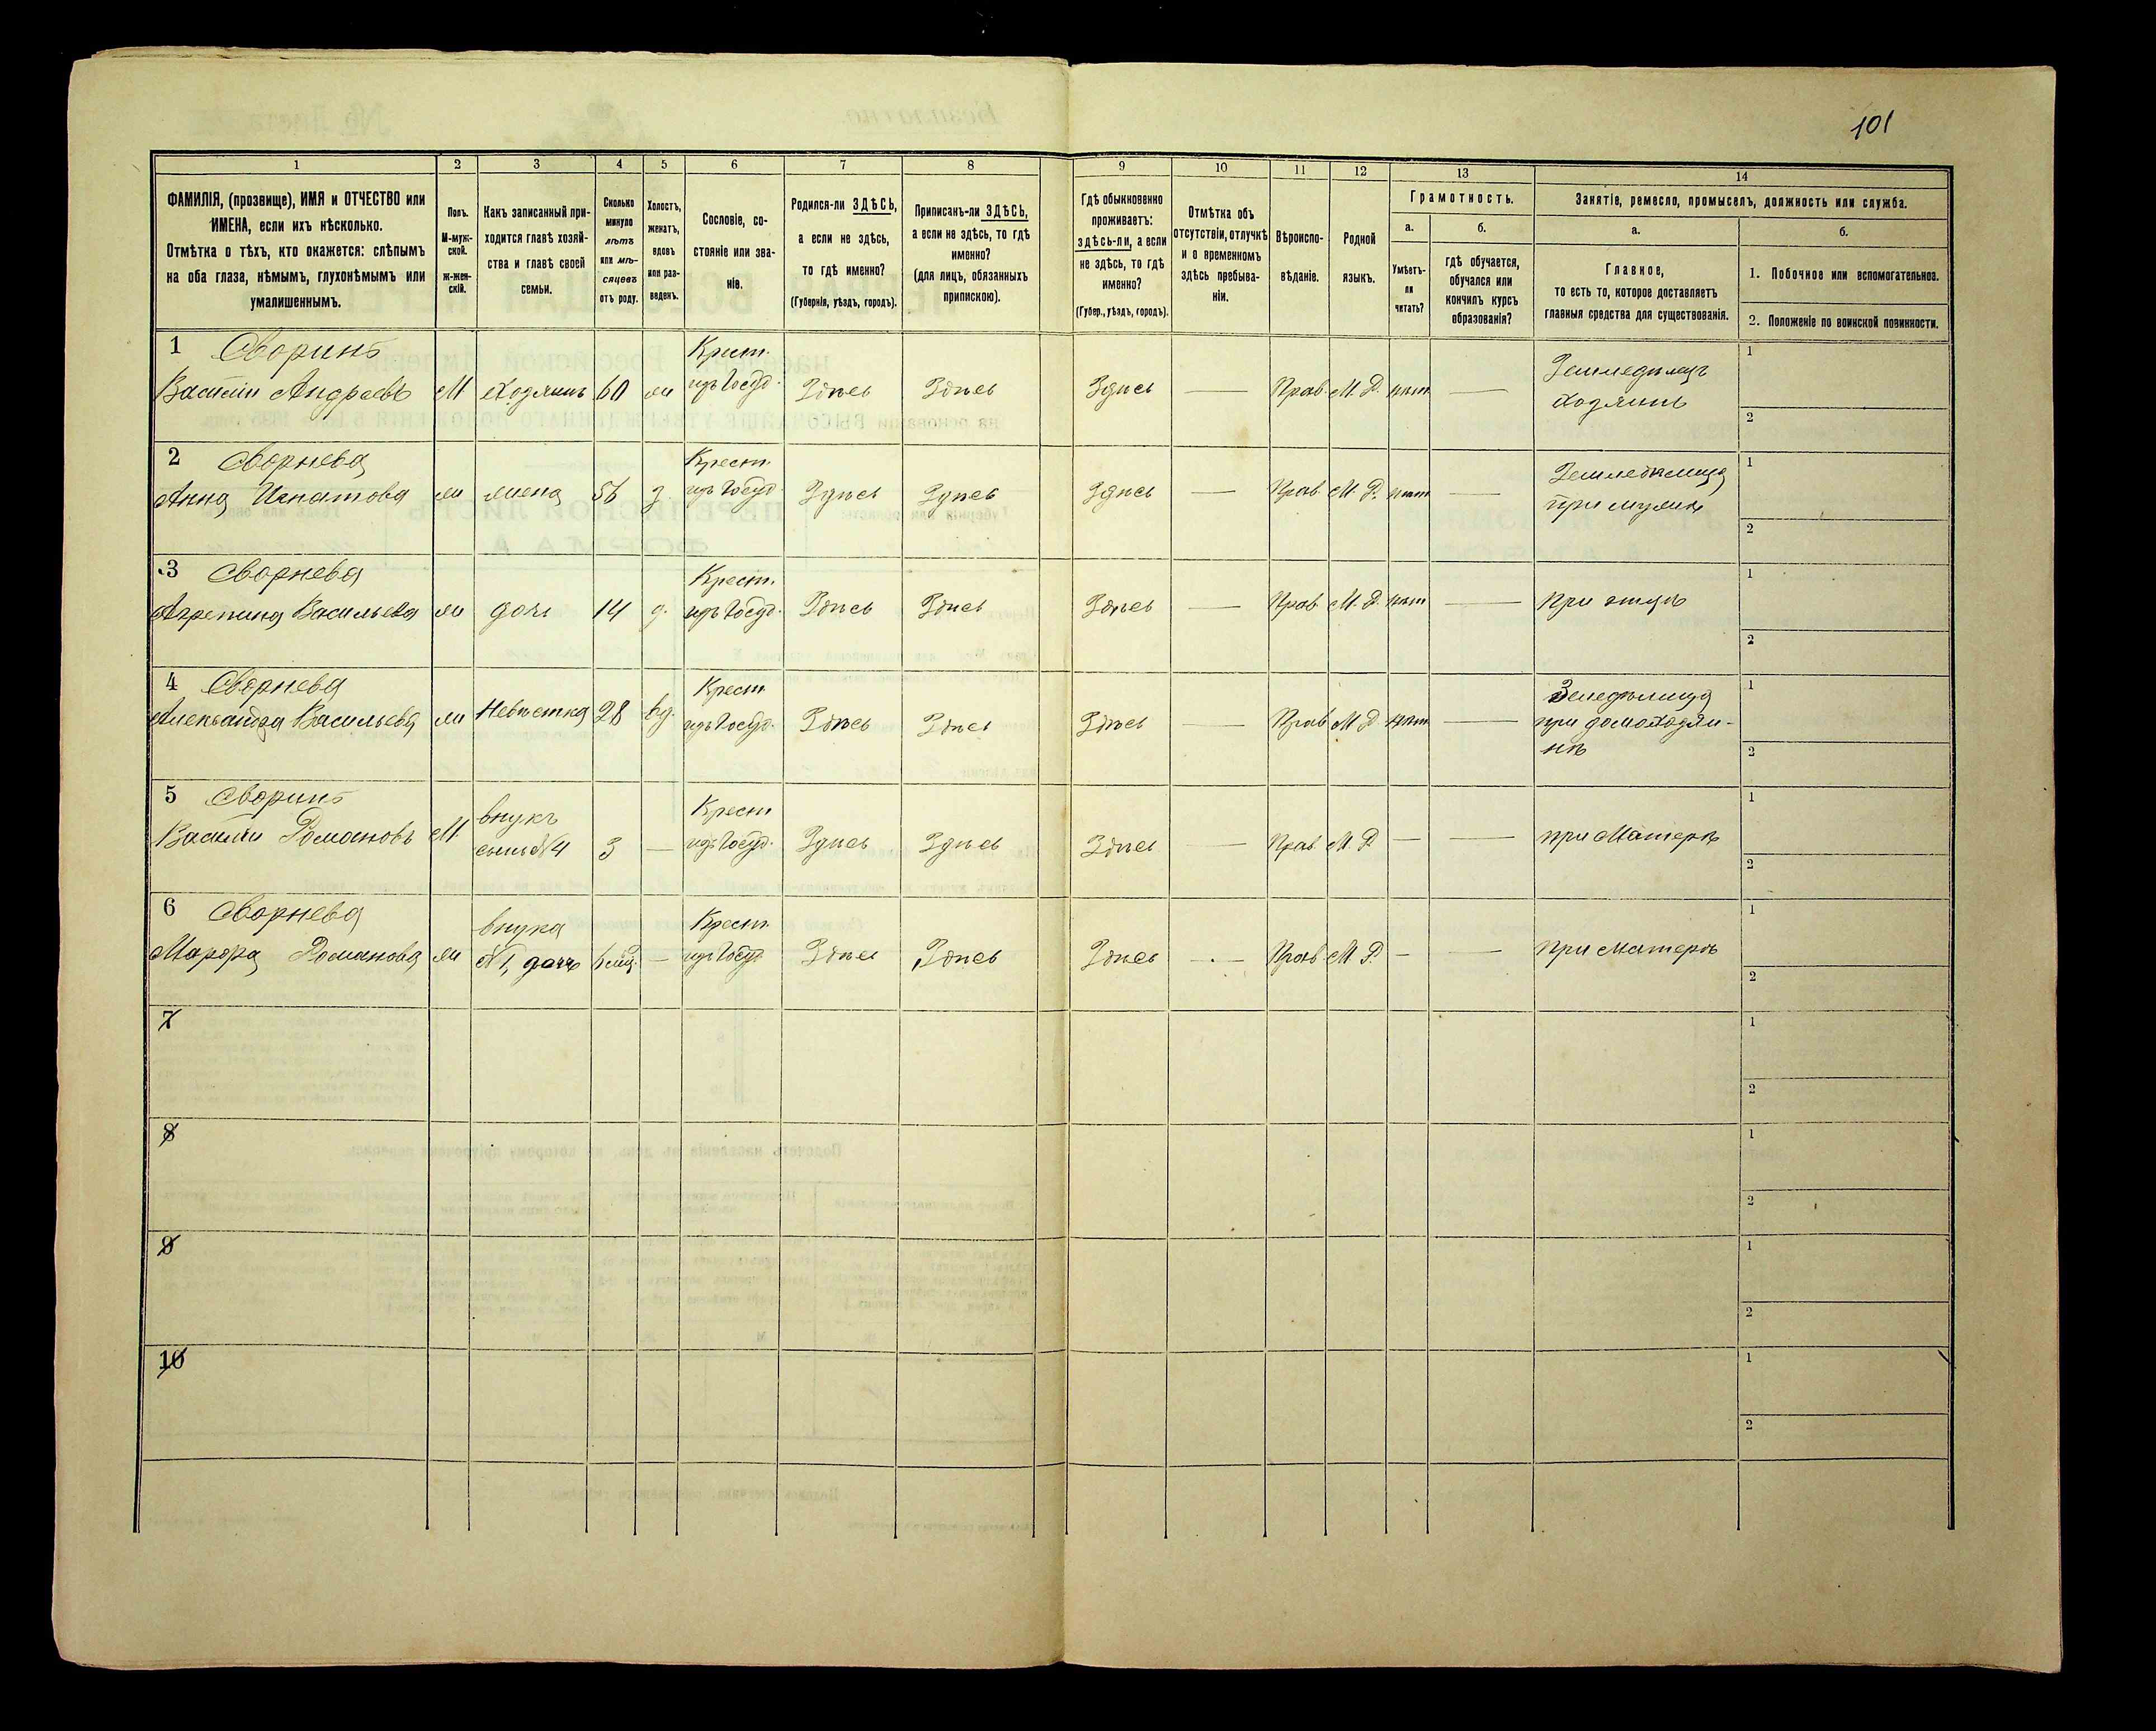 101
1
2
3
4
5
6
7
8
9
10
11
12
13
14
ФАМИЛІЯ, (прозвище), ИМЯ и ОТЧЕСТВО или
ИМЕНА, если ихъ нѣсколько.
Отмѣтка о тѣхъ, кто окажется: слѣпымъ
на оба глаза, нѣмымъ, глухонѣмымъ или
умалишеннымъ.
Полъ.
М-муж-
ской.
ж-жен-
скій.
Какъ записанный при-
ходится главѣ хозяй-
ства и главѣ своей
семьи.
Сколько
минуло
лѣтъ
или мѣ-
сяцевъ
отъ роду.
Холостъ,
женатъ,
вдовъ
или раз-
веденъ.
Сословіе, со-
стояніе или зва-
ніе.
Родился-ли ЗДѢСЬ,
а если не здѣсь,
то гдѣ именно?
(Губернія, уѣздъ, городъ).
Приписанъ-ли ЗДѢСЬ,
а если не здѣсь, то гдѣ
именно?
(для лицъ, обязанныхъ
припискою).
Гдѣ обыкновенно
проживаетъ:
здѣсь-ли, а если
не здѣсь, то гдѣ
именно?
(Губер., уѣздъ, городъ).
Отмѣтка объ
отсутствіи, отлучкѣ
и о временномъ
здѣсь пребыва-
ніи.
Вѣроиспо-
вѣданіе.
Родной
языкъ.
Грамотность.
а.
Умѣетъ-
ли
читать?
б.
гдѣ обучается,
обучался или
кончилъ курсъ
образованія?
Занятіе, ремесло, промыселъ, должность или служба.
а.
Главное,
то есть то, которое доставляетъ
главныя средства для существованія.
б.
1. Побочное или вспомогательное.
2. Положеніе по воинской повинности.
1
Василій Андреевъ М Хозяинъ 60 ж
Крест.
изъ Госуд.
Здѣсь Здѣсь Здѣсь — Прав. М. Р. нѣтъ —
Земледѣлецъ
Хозяинъ
1
2
2 Сворнева
Анна Игнатова ж жена 56 з.
Крест.
изъ Госуд.
Здѣсь Здѣсь Здѣсь — Прав. М. Р. нѣтъ —
Земледѣлица
при мужѣ
1
2
3 Сворнева
Агрепина Васильева ж дочь 14 д.
Крест.
изъ Госуд.
Здѣсь Здѣсь Здѣсь — Прав. М. Р. нѣтъ —
При отцѣ
1
2
4 Сворнева
Александра Васильева ж Невѣстка 28 вд.
Крест.
изъ Госуд.
Здѣсь Здѣсь Здѣсь — Прав. М. Р. нѣтъ —
при домохозяи-
нѣ
1
2
5
Василій Романовъ М
внукъ
сынъ №4
3 —
Крест.
изъ Госуд.
Здѣсь Здѣсь Здѣсь — Прав. М. Р. — —
при Матерѣ
1
2
6 Сворнева
Романова ж
внука
дочь
—
Крест.
изъ Госуд.
Здѣсь Здѣсь Здѣсь — Прав. М. Р. — —
При Матерѣ
1
2
7
1
2
8
1
2
9
1
2
10
1
2